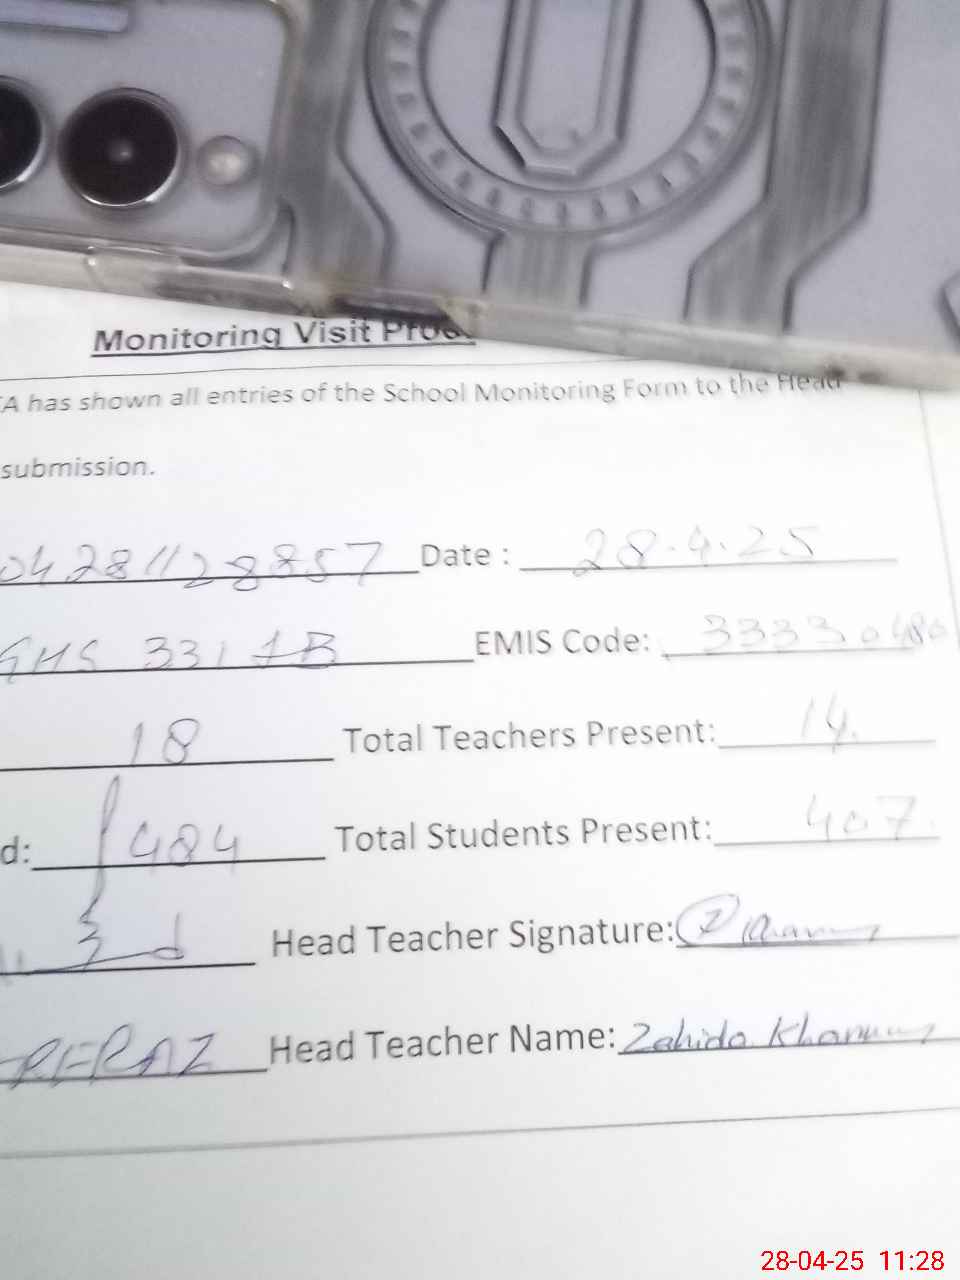 Monitoring Visit Proo
has shown all entries of the School Monitoring Form to the Head
submission.
0428 1128857 Date : 28.4.25
GHS 331 JB EMIS Code: 33330480
18 Total Teachers Present: 14.
d: 484 Total Students Present: 407
Head Teacher Signature:
Head Teacher Name: Zahida Khanum
28-04-25 11:28